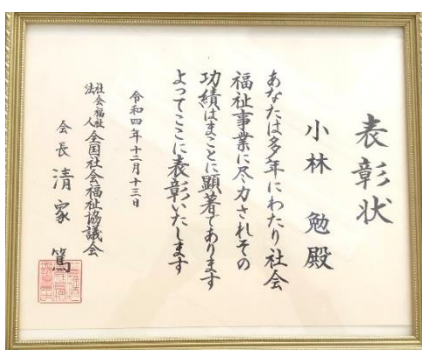 表彰状
小林 勉殿
あなたは多年にわたり社会
福祉事業に尽力されその
功績はまことに顕著であります
よってここに表彰いたします
令和四年十二月十三日
社会福祉
法人 全国社会福祉協議会
会長 清家 篤